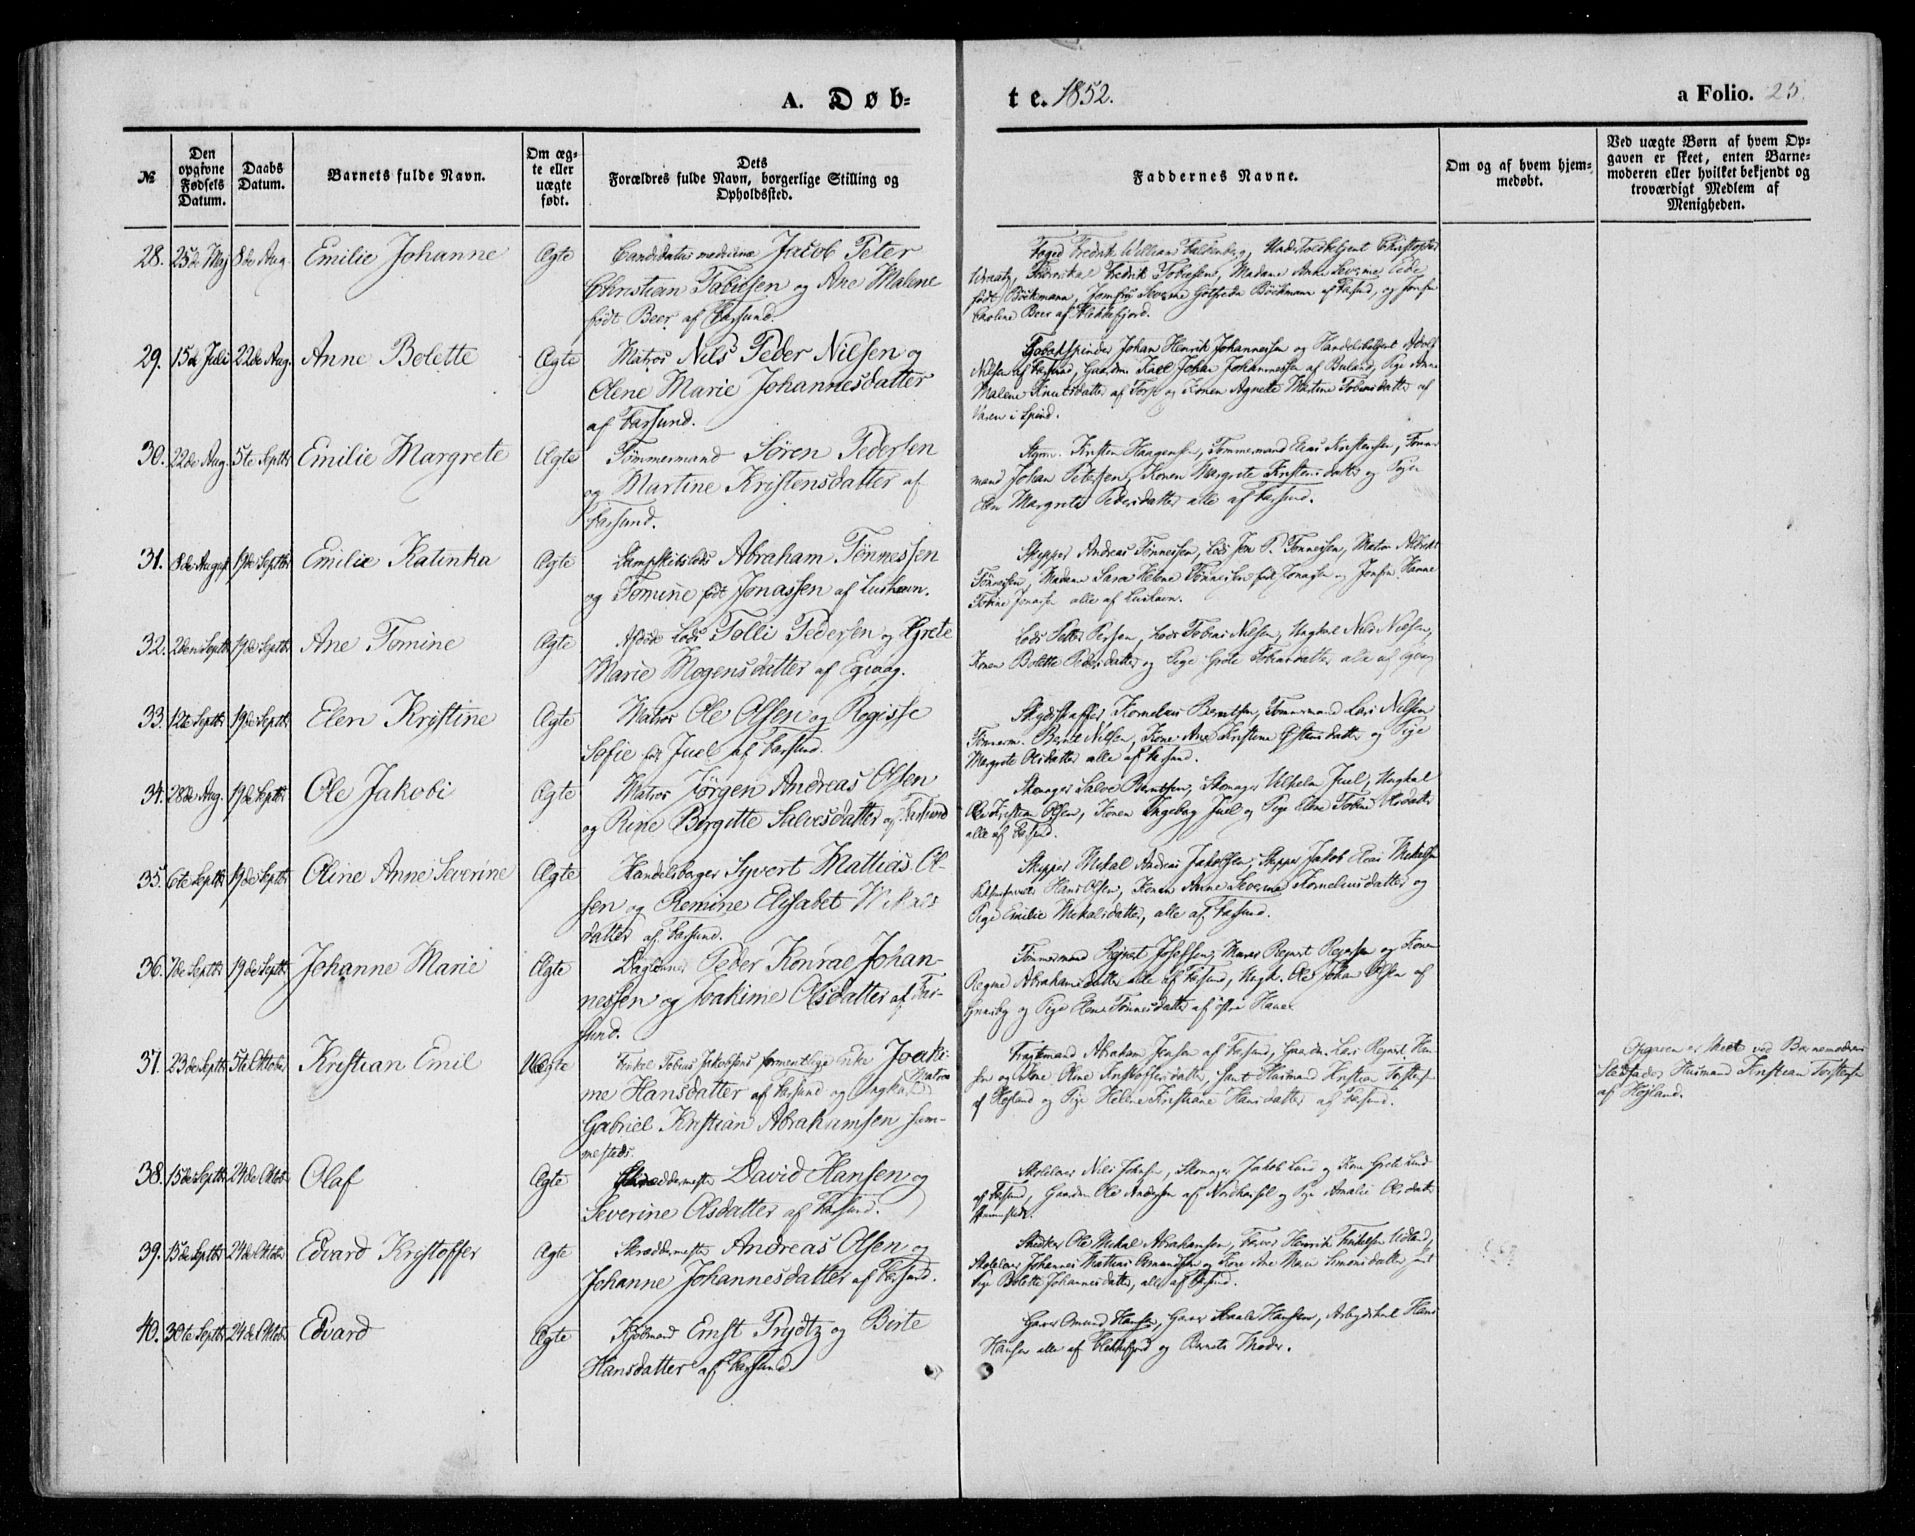 A. Døb-
te. 1852.
a Folio. 25.
№
Den opgivne Fødsels Datum.
Daabs Datum.
Barnets fulde Navn.
Om ægte eller uægte født.
Dets Forældres fulde Navn, borgerlige Stilling og Opholdssted.
Faddernes Navne.
Om og af hvem hjemmedøbt.
Ved uægte Børn af hvem Opgaven er skeet, enten Barnemoderen eller hvilket bekjendt og troværdigt Medlem af Menigheden.
28. 25de Maj 8de Aug. Emilie Johanne Ægte Candidatus medicinæ Jacob Peter
Christian Tobiesen og Ane Malene
født Beer af Farsund.
Foged Fredrik William Falkenberg, Undertoldbetjent Christopher
Fredrik Tobiesens, Madame Ane Severine Eide,
født Böckmann, Jomfru Severine Gotfreda Böckmann af Farsund, og Jomfru
Caroline Beer af Flekkefjord.
29. 15de Juli 22de Aug. Anne Bolette Ægte Matros Nils Peder Nilsen og
Olene Marie Johannesdatter
af Farsund.
Tobakspinder Johan Henrik Johannessen og Handelsbetjent Adolf
Nilsen af Farsund, Gaardm. Karl Johan Johannessen af Buland, Pige Anne
Malene Knutsdatter af og Konen Agnette Martine Tobiasdatter af
Varen i Spind.
30. 22de Aug. 5te Septbr. Emilie Margrete Ægte Tömmermand Sören Pedersen
og Martine Kristensdatter af
Farsund.
Styrm. Kristen Haagensen, Tömmermand Elias Kristensen, Tömmer-
mand Johan Petersen, Konen Margrete Kristensdatter og Pige
Elen Margrete Pedersdatter alle af Farsund.
31. 8de August 19de Septbr. Emilie Katinka Ægte Dampskibslods Abraham Tönnessen
og Tomine født Jonassen af Lushavn.
Skipper Andreas Tönnessen, Lods Jens P. Tönnessen, Matros Albrikt
Tönnessen, Madame Sara Helene Tönnessen født Jonassen og Jomfru Hanne
Tobine Jonassen alle af Lushavn.
32. 2den Septbr. 19de Septbr. Ane Tomine Ægte Afdöde Lods Tolli Pedersen og Grete
Marie Mogensdatter af Egvaag.
Lods Petter Persen, Lods Tobias Nilsen, Ungkal Nils Nielsen,
Konen Bolette Pedersdatter og Pige Grete Tobiasdatter, alle af Egvaag
33. 12te Septbr. 19de Septbr. Elen Kristine Ægte Matros Ole Olsen og Regisse
Sofie født Juel af Farsund.
Skydsskaffer Kornelius Berntsen, Tömmermand Lars Nilsen
Tömmerm. Bernt Nilsen, Kone Ane Kristine Östensdatter og Pige
Margrete Olsdatter alle af Farsund.
34. 28de Aug. 19de Septbr. Ole Jakobi Ægte Matros Jörgen Andreas Olsen
og Rine Birgitte Salvesdatter af Farsund
Skomager Salve Berntsen, Skomager Vilhelm Juel, Ungkal
Ole Kristian Olsen, Konen Ingeborg Juel og Pige Elene Tobine Olsdatter
alle af Farsund.
35. 6te Septbr. 19de Septbr. Oline Anne Severine Ægte Handelsborger Syvert Mattias Ol-
sen og Remine Elisabet Mikals
datter af Farsund.
Skipper Mikal Andreas Jakobsen, Skipper Jakob Elias Mikalsen
Hans Olsen, Konen Anne Severine Korneliusdatter og
Pige Emilie Mikalsdatter, alle af Farsund.
36. 7de Septbr. 19de Septbr. Johanne Marie Ægte Daglönner Peder Konrad Johan-
nessen og Joakime Olsdatter af Far-
sund.
Tömmermand Reinert Josefsen, Murer Reinert Reiersen og Konen
Regine Abrahamsdatter alle af Farsund, Ungk. Ole Johan Olsen af
og Pige Elene Tönnesdatter af östre Hanes
37. 23de Septbr. 5te Oktober Kristian Emil Uægte Enke Joaki-
me Hansdatter af Farsund og Ungkal (Matros)
Gabriel Kristian Abrahamsen sam-
mesteds.
Fragtmand Abraham Jensen af Farsund, Gaardm. Lars Reinert Hen-
sen og Kone Oline Kristoffersdatter, samt Husmand Kristian Torstensen
af Höjland og Pige Helene Kristiane Hansdatter af Farsund.
Opgaven er skeet ved Barnemoderens
Stedfader Husmand Kristian Torstensen
af Höjland.
38. 15de Septbr. 24de Oktob. Olaf Ægte Skræddermester David Hansen og
Severine Olsdatter af Farsund.
Nils Johnsen, Skomager Jakob Lund og Kone Grete Lund
af Farsund, Gaardm Ole Andersen af og Pige Amalie Olsdatter
sammesteds.
39. 15de Septbr. 24de Oktobr Edvard Kristoffer Ægte Skræddermester Andreas Olsen og
Johanne Johannesdatter af Farsund.
Snedker Ole Mikal Abrahamsen, Farver Henrik Udland,
Johannes Mattias Asmundsen og Kone Ane Marie Simonsdatter samt
Pige Bolette Johannesdatter, alle af Farsund.
40. 30te Septbr. 24de Oktob. Edvard Ægte Kjöbmand Ernst Trydtz og Birte
Hansdatter af Farsund
Garver Omund Hansen, Garver Staale Hansen, Arbejdskal Hans
Hansen alle af Flekkefjord og Barnets Moder.